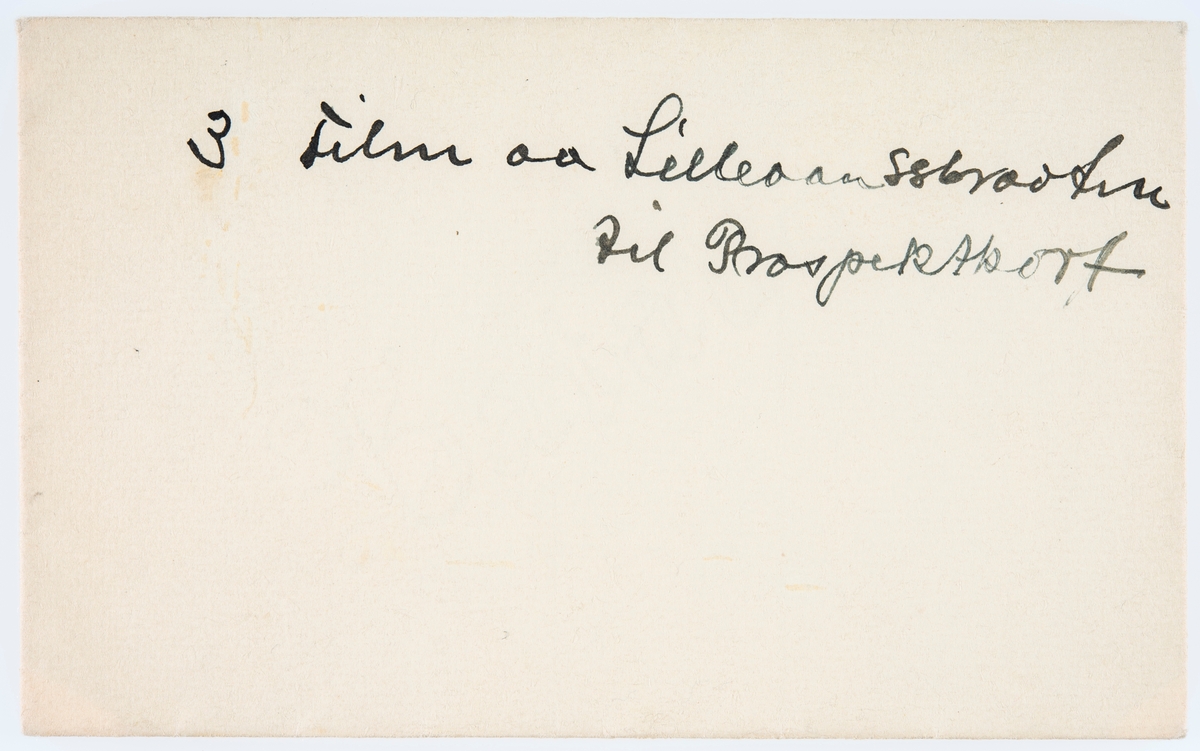 3 Film aa Lilleaanssbraaten
til Prospektkort